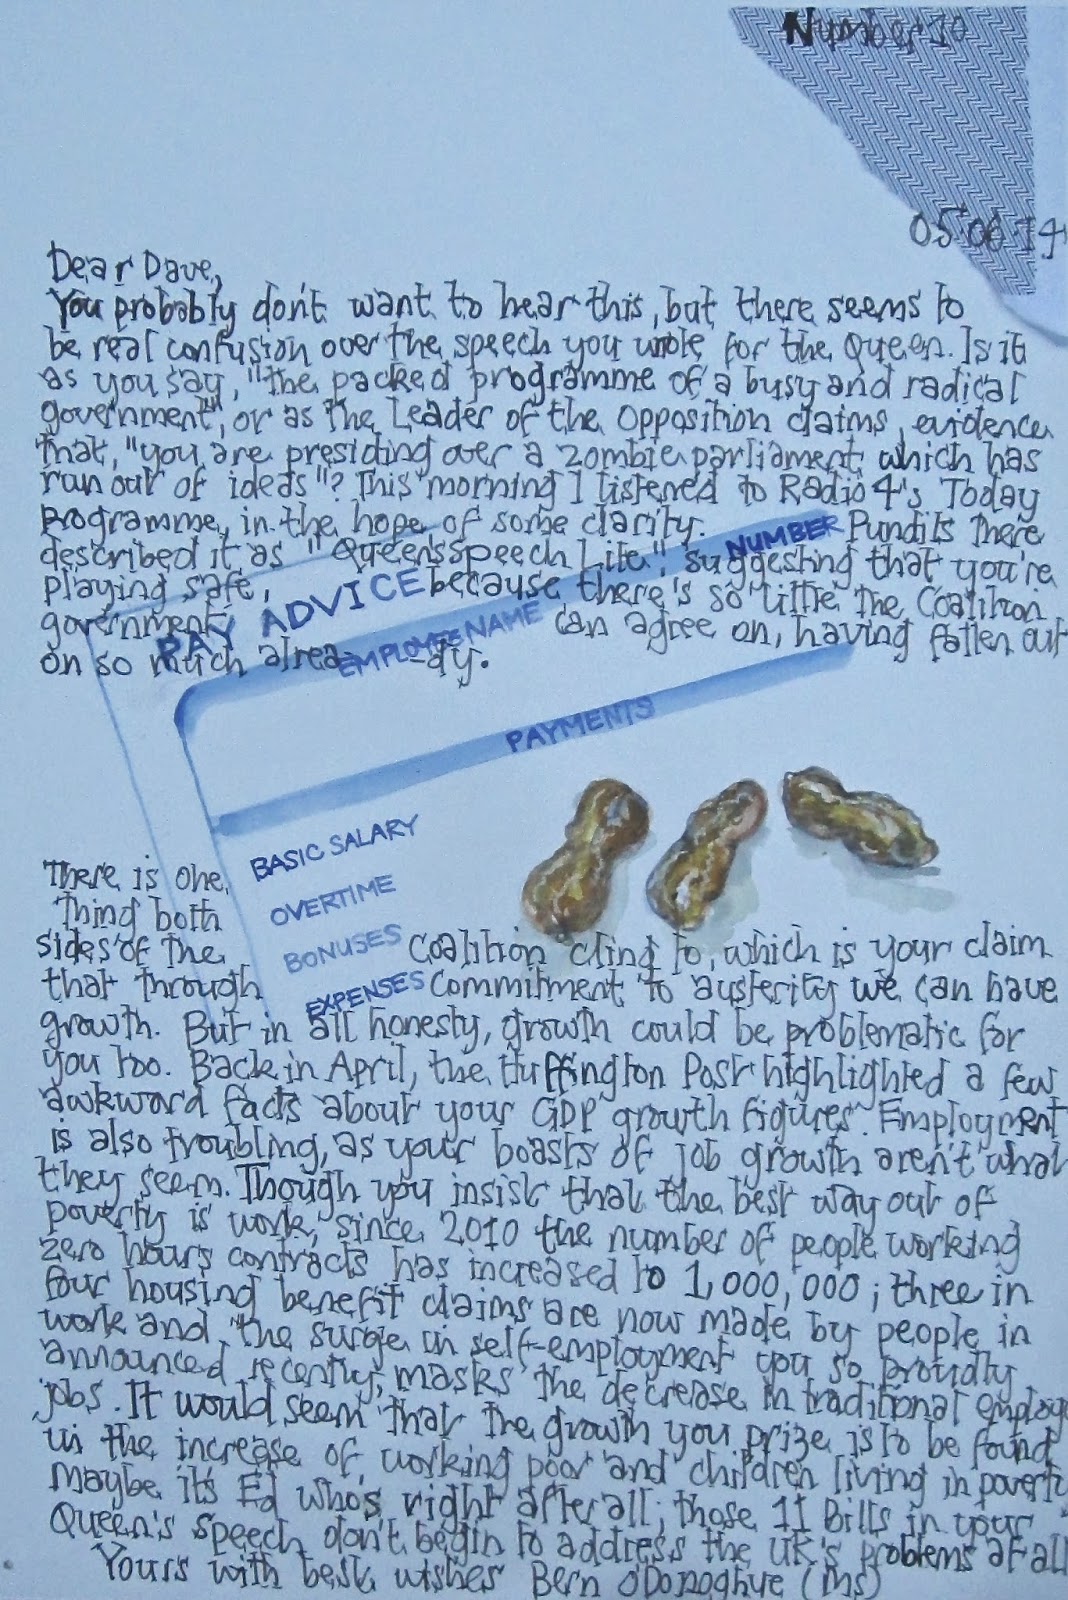 Number 10
05 06 14
Dear Dave,
You probably don't want to hear this, but there seems to
be real confusion over the speech you wrote for the Queen. Is it
as you say, "the packed programme of a busy and radical
government", or as the Leader of the Opposition claims, evidence
that, "you are presiding over a zombie parliament which has
run out of ideas"? This morning I listened to Radio 4's Today
programme, in the hope of some clarity. Pundits there
described it as "Queen's speech Lite", suggesting that you're
playing safe, because there's so little the Coalition
government can agree on, having fallen out
on so much alrea--dy.
PAY ADVICE
NUMBER
EMPLOYEE NAME
PAYMENTS
BASIC SALARY
OVERTIME
BONUSES
EXPENSES
There is one
thing both
sides of the Coalition cling to, which is your claim
that through commitment to austerity we can have
growth. But in all honesty, growth could be problematic for
you too. Back in April, the Huffington Post highlighted a few
awkward facts about your GDP growth figures. Employment
is also troubling, as your boasts of job growth aren't what
they seem. Though you insist that the best way out of
poverty is work, since 2010 the number of people working
zero hours contracts has increased to 1,000,000; three in
four housing benefit claims are now made by people in
work and the surge in self-employment you so proudly
announced recently, masks the decrease in traditional employe
jobs. It would seem that the growth you prize is to be found
in the increase of, working poor and children living in poverty
Maybe it's Ed who's right after all; those 11 Bills in your
Queen's speech don't begin to address the UK's problems at all
Yours with best wishes Bern O'Donoghue (Ms)